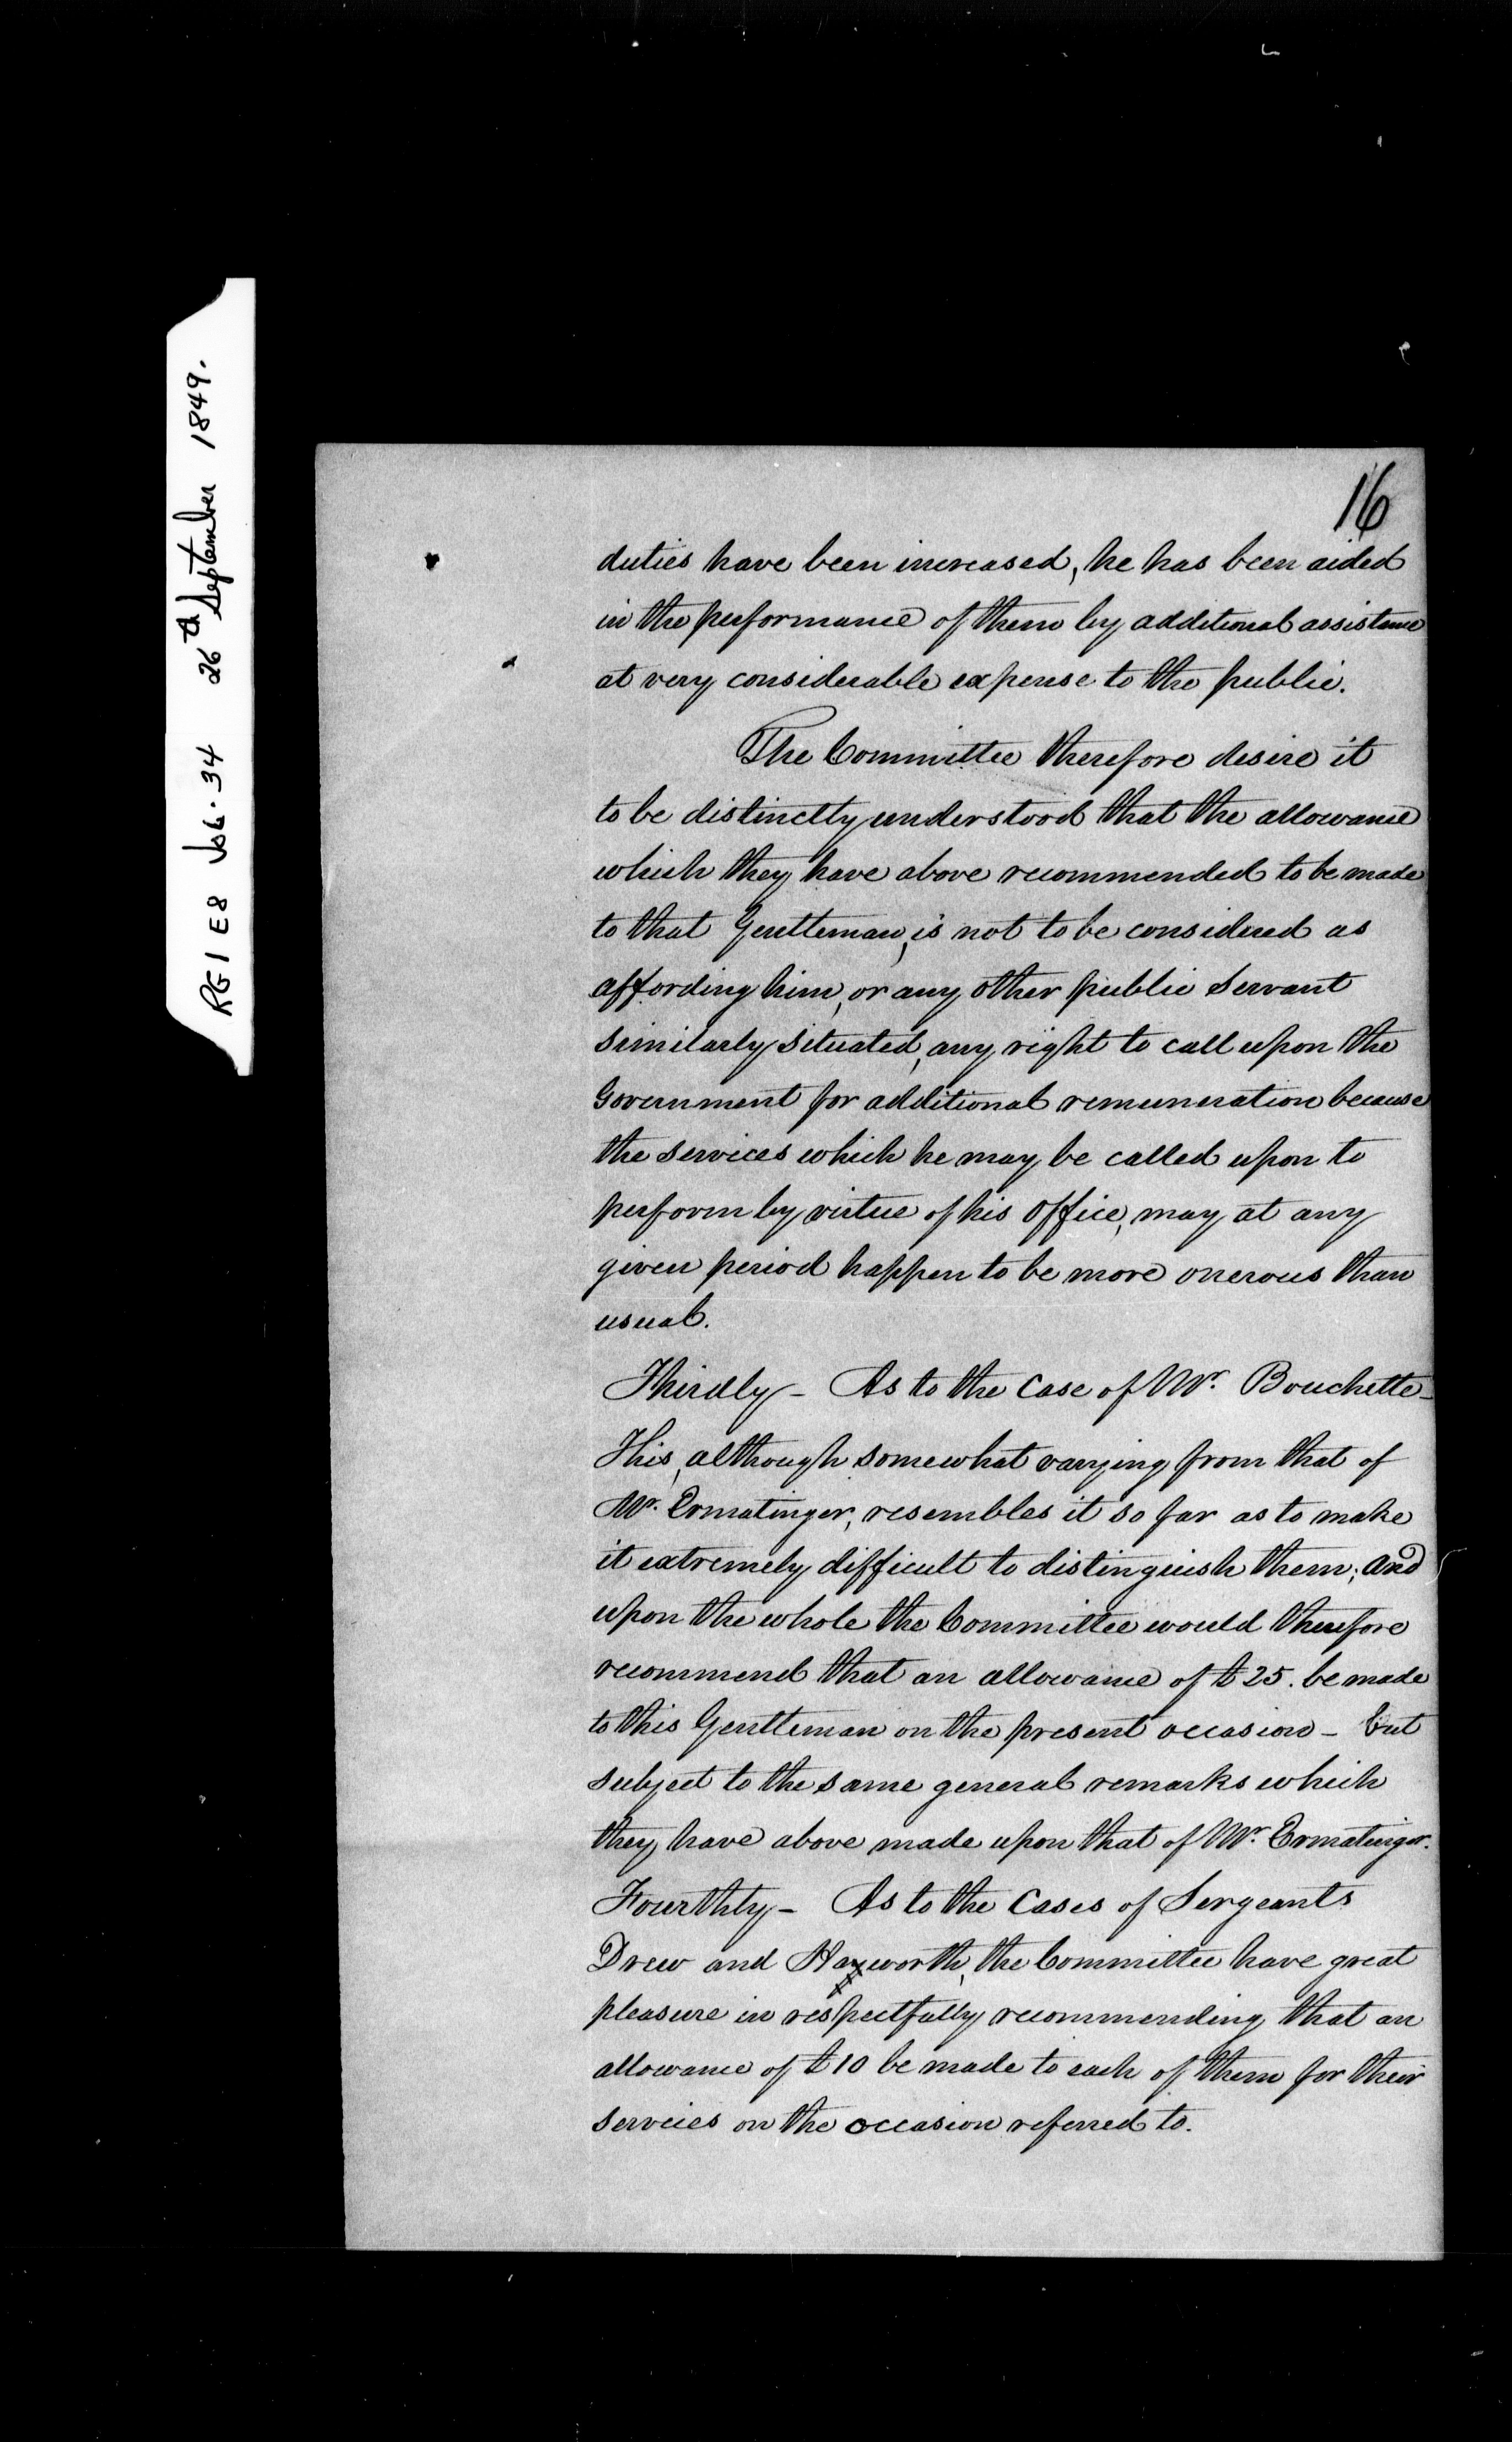 RG1 E8 Vol. 34 26th September 1849.
16
duties have been increased, he has been aided
in the performance of them by additional assistance
at very considerable expense to the public.
The Committee therefore desire it
to be distinctly understood that the allowance
which they have above recommended to be made
to that Gentleman, is not to be considered as
affording him, or any other public Servant
similarly situated, any right to call upon the
Government for additional remuneration because
the services which he may be called upon to
perform by virtue of his office, may at any
given period happen to be more onerous than
usual.
Thirdly - As to the Case of Mr. Bouchette -
This, although somewhat varying from that of
Mr. Ermatinger, resembles it so far as to make
it extremely difficult to distinguish them; and
upon the whole the Committee would therefore
recommend that an allowance of £25. be made
to this Gentleman on the present occasion - but
subject to the same general remarks which
they have above made upon that of Mr. Ermatinger.
Fourthly - As to the Cases of Sergeants
Drew and Hayworth, the Committee have great
pleasure in respectfully recommending that an
allowance of £10 be made to each of them for their
services on the occasion referred to.